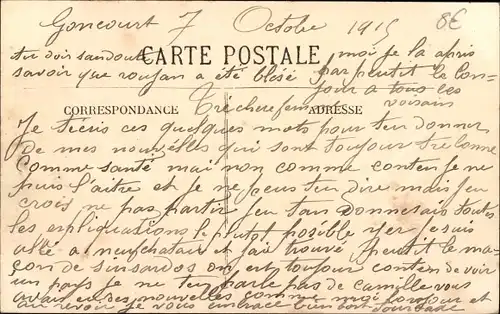 Goncourt 7 Octobre 1915 8€
tu dois sandoute CARTE POSTALE moi je la apris
savoir que roujan a été blesé par peutit le bon-
jour a tous les
voisins
CORRESPONDANCE ADRESSE
Tre chere fem
Je técris ces quelques mots pour ten donner
De mes nouvelles qui sont toujour tré bonne
Comme santé mai non comme conten je ne
puis l'aitre et je ne peus ten dire mais jeu
crois ne pas partir jeu tan donnerais toutes
les espliquasions le plutot posible yer je suis
allé a neuchatau et jai trouvé peutit le ma-
çon de on est toujour conten de voir
un pays je ne ten parle pas de camille vous
avai eu des nouvelles comme moi bonjour et
au revoir je vous embrace bien fort